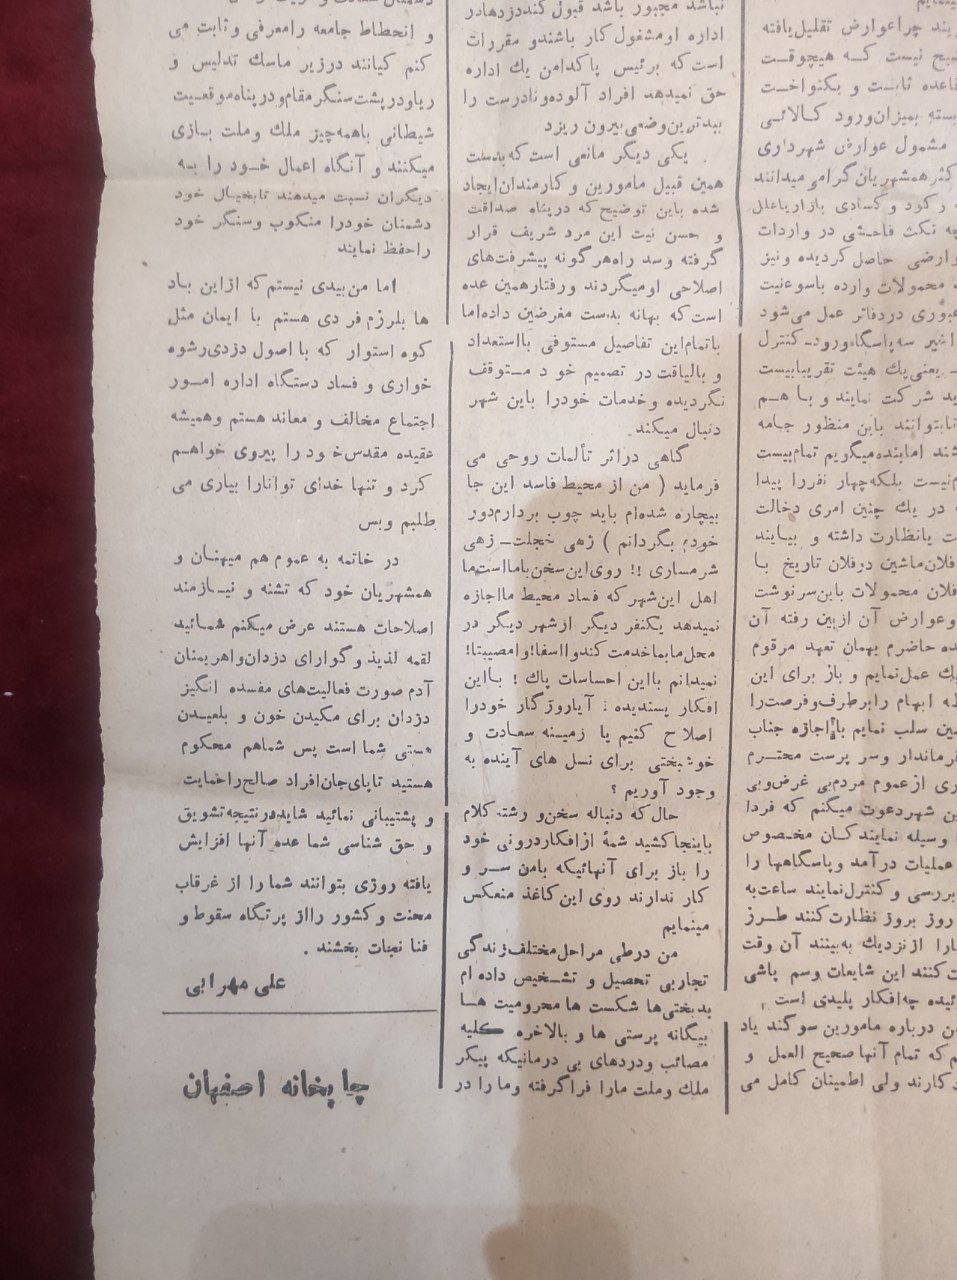 بند چراعوارض تقلیل‌یافته
صحیح نیست که هیچوقت
قاعده ثابت و یکنواخت
بسته بمیزان‌ورود کالائی
مشمول عوارض شهرداری
کثرهمشهریان‌گرامی‌میدانند
رکود وکسادی بازاریاعلل
چه نکث فاحشی در واردات
وارضی حاصل‌گردیده ونیز
محمولات وارده باسوءنیت
عبوری دردفاتر عمل می‌شود
اشیر سه‌پاسگاه‌ورود-کنترل
یعنی‌یك هیئت تقریبابیست
ید شرکت نمایند و با هم
تابتوانند باین منظور جامه
شند امابنده‌میگویم تمام‌بیست
م‌نیست بلکه‌چهار نفررا پیدا
در یك چنین امری دخالت
ت یانظارت داشته و بیایند
فلان‌ماشین درفلان تاریخ با
فلان محمولات باین‌سرنوشت
وعوارض آن ازبین رفته آن
ده حاضرم بهمان تعهد مرقوم
یك عمل‌نمایم و باز برای این
ابهام رابرطرف‌وفرصت‌را
ین سلب نمایم بااجازه جناب
فرماندار وسر پرست محترم
ری ازعموم مردم‌بی غرض‌وبی
ن شهردعوت میکنم که فردا
وسیله نمایندکان مخصوص
عملیات درآمد وپاسگاهها را
بررسی وکنترل‌نمایند ساعت‌به
روز بروز نظارت‌کنند طرز
ارا ازنزدیك به‌بینند آن وقت
ت‌کنند این شایعات وسم پاشی
ائیده چه‌افکار پلیدی است
ن درباره مامورین سوگند یاد
م که تمام آنهاصحیح العمل و
دکارند ولی اطمینان کامل می
نباشد مجبور باشد قبول کنددزدهادر
اداره اومشغول کار باشندو مقررات
است‌که برئیس پاکدامن یك اداره
حق نمیدهد افراد آلوده‌ونادرست را
ببدترین‌وضعی‌بیرون ریزد
یکی دیگر مانعی است که‌بدست
همین قبیل مامورین و کارمندان‌ایجاد
شده باین توضیح‌که درپناه صداقت
و حسن نیت این مرد شریف قرار
گرفته وسد راه‌هرگونه پیشرفت‌های
اصلاحی اومیگردند ورفتارهمین عده
است‌که بهانه بدست مغرضین داده‌اما
باتمام‌این تفاصیل مستوفی بااستعداد
و بالیاقت در تصمیم خو د متوقف
نگردیده وخدمات خودرا باین شهر
دنبال میکند
گاهی دراثر تألمات روحی می
فرماید ( من از محیط فاسد این جا
بیچاره شده‌ام باید چوب بردارم‌دور
خودم بگردانم ) زهی خجلت- زهی
شرمساری !! روی‌این‌سخن‌باما‌است‌ما
اهل این‌شهرکه فساد محیط مااجازه
نمیدهد یکنفر دیگر ازشهر دیگر در
محل‌مابماخدمت کندوااسفا!وامصیبتا!
نمیدانم بااین احساسات پاك ! بااین
افکار پسندیده : آیاروزگار خودرا
اصلاح کنیم یا زمینه سعادت و
خوشبختی برای نسل های آینده به
وجود آوریم ؟
حال‌که دنباله سخن‌و رشته کلام
باینجاکشید شمهٔ ازافکاردرونی خود
را باز برای آنهائیکه بامن سر و
کار ندارند روی این‌کاغذ منعکس
مینمایم
من درطی مراحل‌مختلف‌زندگی
تجاربی تحصیل و تشخیص داده ام
بدبختی‌ها شکست ها محرومیت ها
بیگانه پرستی ها و بالاخره کلیه
مصائب ودردهای بی درمانیکه پیکر
ملك وملت مارا فراگرفته وما را در
و انحطاط جامعه رامعرفی وثابت می
کنم کیانند درزیر ماسك تدلیس و
ریاودرپشت‌سنگرمقام‌ودرپناه‌موقعیت
شیطانی باهمه‌چیز ملك وملت بازی
میکنند و آنگاه اعمال خود را به
دیگران نسبت میدهند تابخیال خود
دشمنان خودرا منکوب وسنگر خود
راحفظ نمایند
اما من‌بیدی نیستم که ازاین باد
ها بلرزم فر دی هستم با ایمان مثل
کوه استوار که با اصول دزدی‌رشوه
خواری و فساد دستگاه اداره امور
اجتماع مخالف و معاند هستم وهمیشه
عقیده مقدس‌خود را پیروی خواهم
کرد و تنها خدای توانارا بیاری می
طلبم وبس
در خاتمه به عموم هم میهنان و
همشهریان خود که تشنه و نیازمند
اصلاحات هستند عرض میکنم شمائید
لقمه لذیذ وگوارای دزدان‌واهریمنان
آدم صورت فعالیت‌های مفسده انگیز
دزدان برای مکیدن خون و بلعیدن
هستی شما است پس شماهم محکوم
هستید تاپای‌جان‌افراد صالح‌راحمایت
و پشتیبانی نمائید شایددرنتیجه‌تشویق
و حق شناسی شما عده آنها افزایش
یافته روزی بتوانند شمارا از غرقاب
محنت وکشور رااز پرتگاه سقوط و
فنا نجات بخشند .
علی مهرابی
چاپخانه اصفهان